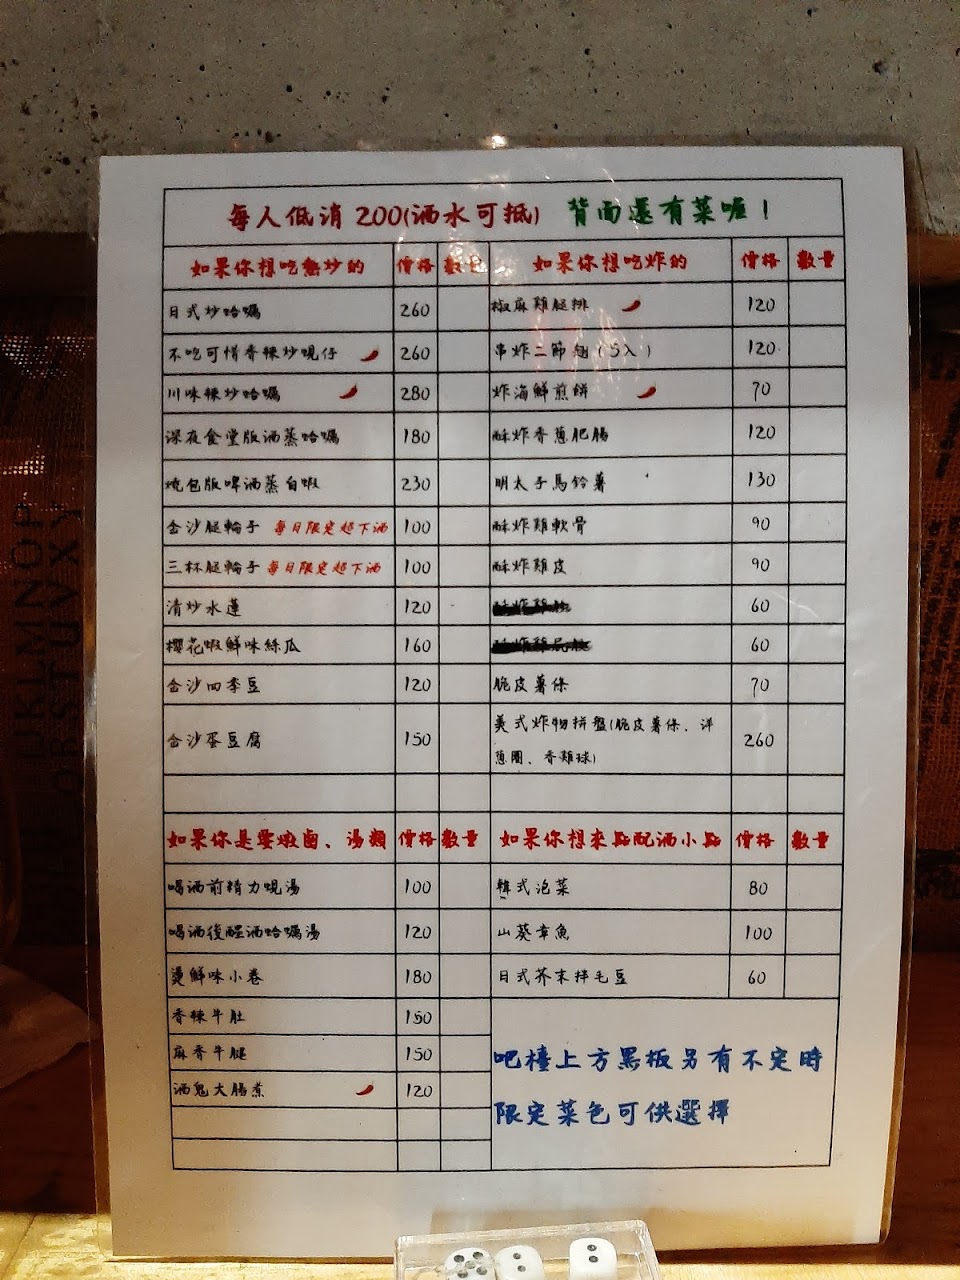 每人低消 200(酒水可抵) 背面還有菜喔！
如果你想吃熱炒的 價格 數量
日式炒蛤蠣 260
不吃可惜香辣炒蜆仔 260
川味辣炒蛤蠣 280
深夜食堂版酒蒸蛤蠣 180
燒包版啤酒蒸白蝦 230
金沙腿輪子 每日限定超下酒 100
三杯腿輪子 每日限定超下酒 100
清炒水蓮 120
櫻花蝦鮮味絲瓜 160
金沙四季豆 120
金沙蛋豆腐 150
如果你想吃炸的 價格 數量
椒麻雞腿排 120
串炸二節翅 (5入) 120
炸海鮮煎餅 70
酥炸香蔥肥腸 120
明太子馬鈴薯 130
酥炸雞軟骨 90
酥炸雞皮 90
60
60
脆皮薯條 70
美式炸物拼盤(脆皮薯條、洋
蔥圈、香雞球) 260
如果你是要燉鹵、湯類 價格 數量
喝酒前精力蜆湯 100
喝酒後醒酒蛤蠣湯 120
燙鮮味小卷 180
香辣牛肚 150
麻香牛腱 150
酒鬼大腸煮 120
如果你想來點配酒小點 價格 數量
韓式泡菜 80
山葵章魚 100
日式芥末拌毛豆 60
吧檯上方黑板另有不定時
限定菜色可供選擇